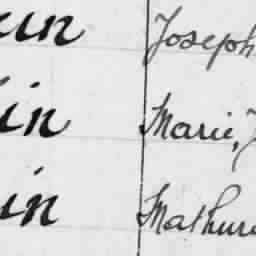 in Joseph
in Marie, J
in Mathur